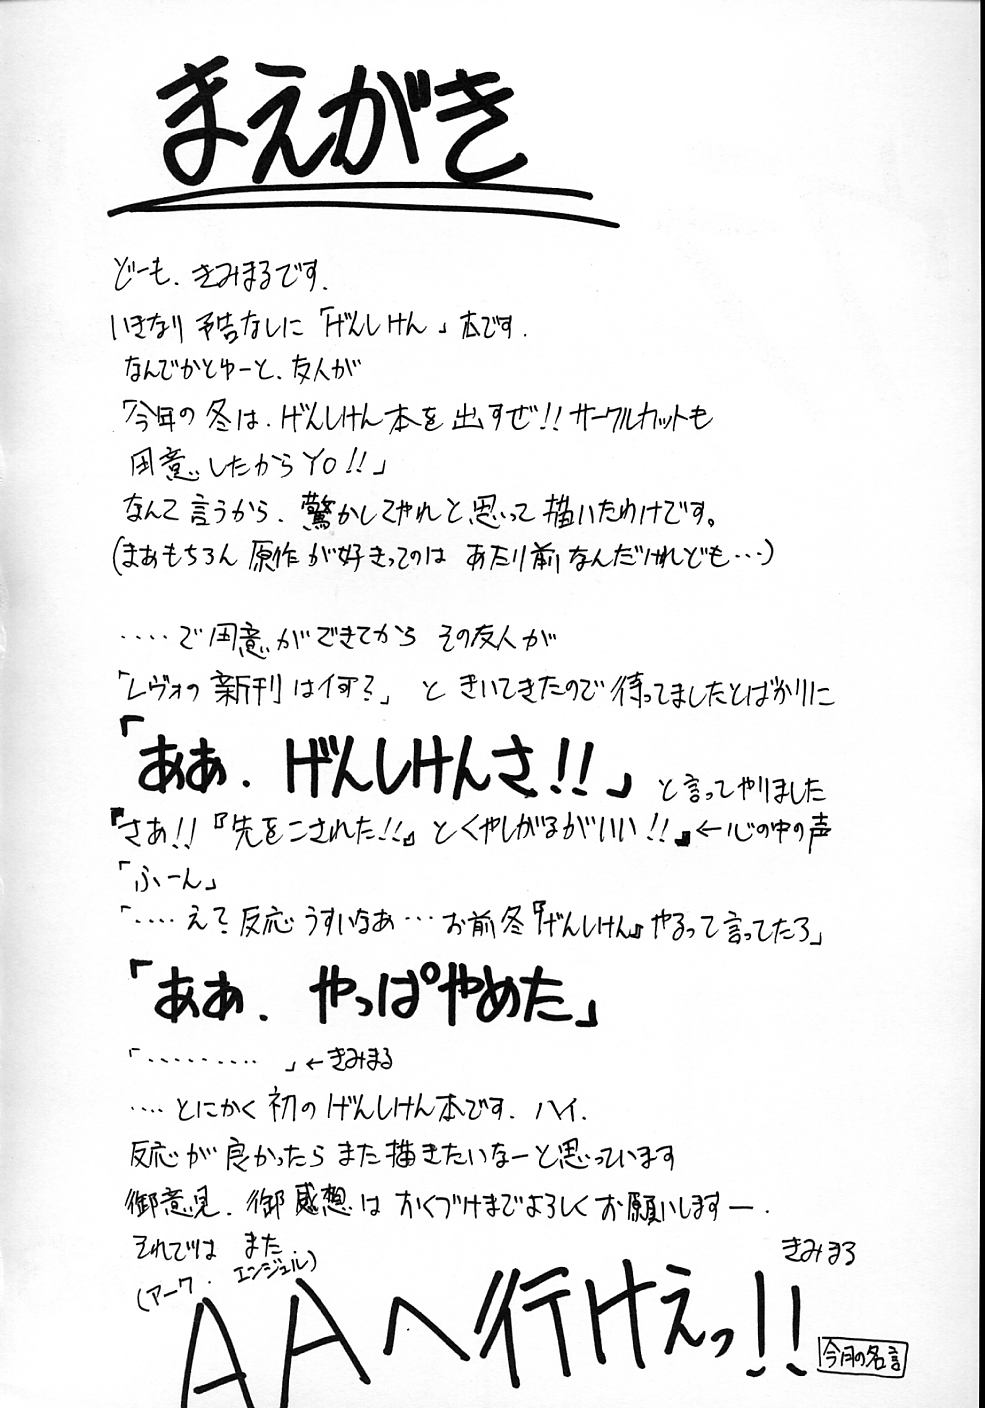 まえがき
どーも、きみまるです。
いきなり予告なしに「げんしけん」本です。
なんでかとゆーと、友人が
「今年の冬は、げんしけん本を出すぜ!!サークルカットも
用意したからYO!!」
なんて言うから、驚かしてやれと思って描いたわけです。
(まあもちろん原作が好きってのはあたり前なんだけれども…)
‥‥で用意ができてからその友人が
「レヴォの新刊は何?」ときいてきたので待ってましたとばかりに
「ああ、げんしけんさ!!」と言ってやりました
『さあ!!『先をこされた!!』とくやしがるがいい!!』←心の中の声
「ふーん」
「‥‥えて?反応うすいなあ…お前冬『げんしけん』やるって言ってたろ」
「ああ、やっぱやめた」
「‥‥‥‥‥」←きみまる
‥‥とにかく初のげんしけん本です。ハイ。
反応が良かったらまた描きたいなーと思っています
御意見、御感想はおくづけまでよろしくお願いしますー。
それではまた
きみまる
(アーク・エンジェル)
AAへ行けぇっ!!
今月の名言